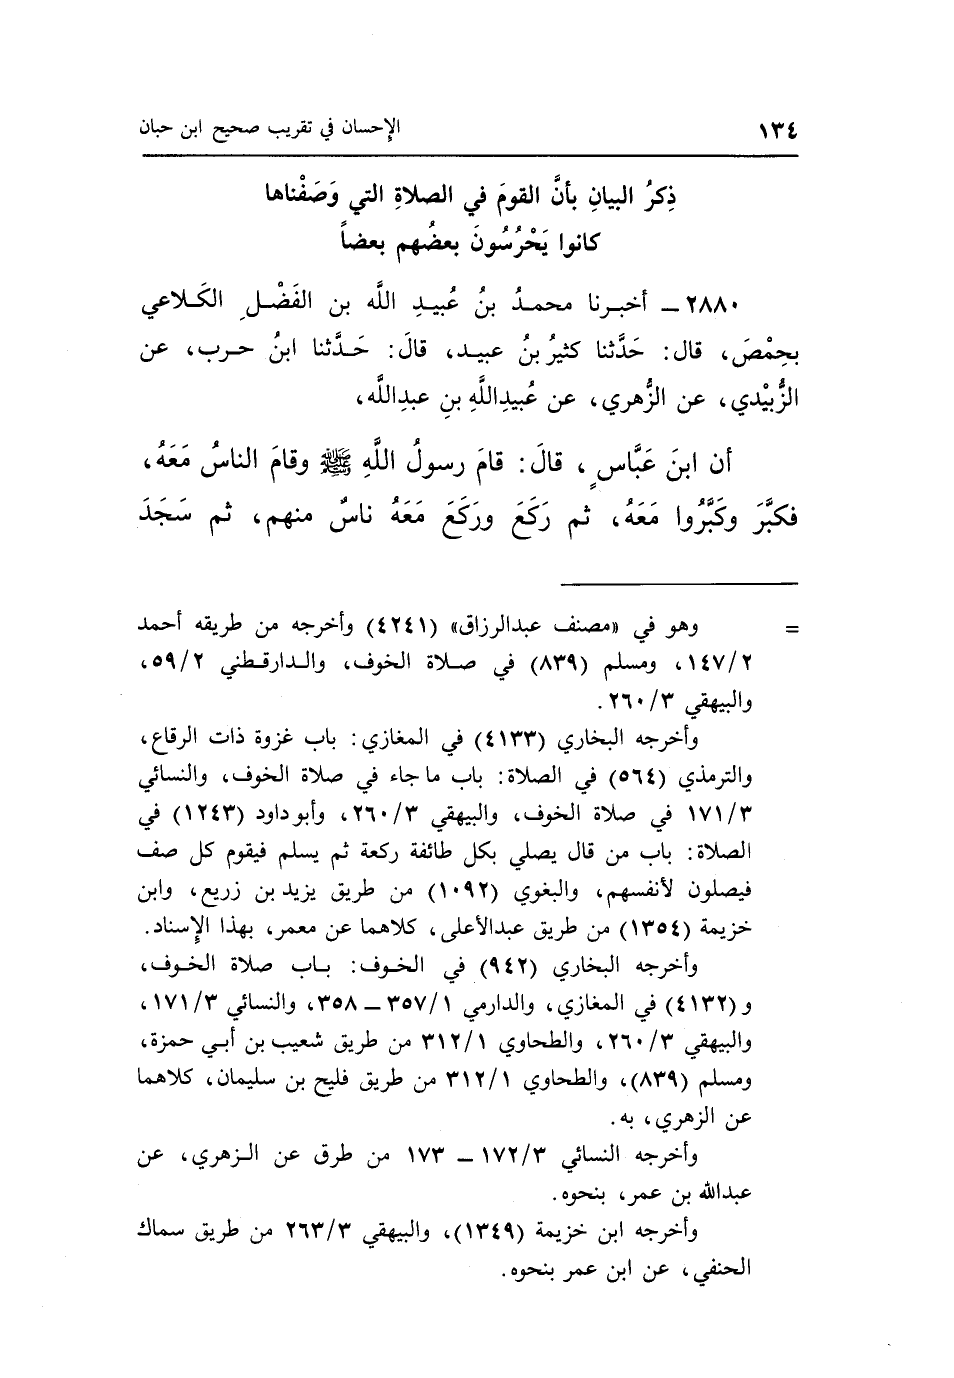 ١٣٤ الإحسان في تقريب صحيح ابن حبان
ذِكرُ البيانِ بأنَّ القومَ في الصلاةِ التي وَصَفْناها
كانوا يَحْرُسُونَ بعضُهم بعضاً
٢٨٨٠ ـ أخبرنا محمدُ بنُ عُبيدِ اللَّه بن الفَضْلِ الكَلاعي
بحِمْصَ، قال: حَدَّثنا كثيرُ بنُ عبيد، قالَ: حَدَّثنا ابنُ حرب، عن
الزُّبيْدي، عن الزُّهري، عن عُبيدِاللَّهِ بنِ عبدِاللَّه،
أن ابنَ عَبَّاسٍ، قالَ: قامَ رسولُ اللَّهِ ﷺ وقامَ الناسُ مَعَهُ،
فكبَّرَ وكَبَّرُوا مَعَهُ، ثم رَكَعَ ورَكَعَ مَعَهُ ناسٌ منهم، ثم سَجَدَ
= وهو في «مصنف عبدالرزاق» (٤٢٤١) وأخرجه من طريقه أحمد
١٤٧/٢، ومسلم (٨٣٩) في صلاة الخوف، والدارقطني ٥٩/٢،
والبيهقي ٢٦٠/٣.
وأخرجه البخاري (٤١٣٣) في المغازي: باب غزوة ذات الرقاع،
والترمذي (٥٦٤) في الصلاة: باب ما جاء في صلاة الخوف، والنسائي
١٧١/٣ في صلاة الخوف، والبيهقي ٢٦٠/٣، وأبو داود (١٢٤٣) في
الصلاة: باب من قال يصلي بكل طائفة ركعة ثم يسلم فيقوم كل صف
فيصلون لأنفسهم، والبغوي (١٠٩٢) من طريق يزيد بن زريع، وابن
خزيمة (١٣٥٤) من طريق عبدالأعلى، كلاهما عن معمر، بهذا الإسناد.
وأخرجه البخاري (٩٤٢) في الخوف: باب صلاة الخوف،
و(٤١٣٢) في المغازي، والدارمي ٣٥٧/١ ـ ٣٥٨، والنسائي ١٧١/٣،
والبيهقي ٢٦٠/٣، والطحاوي ٣١٢/١ من طريق شعيب بن أبي حمزة،
ومسلم (٨٣٩)، والطحاوي ٣١٢/١ من طريق فليح بن سليمان، كلاهما
عن الزهري، به.
وأخرجه النسائي ١٧٢/٣ ـ ١٧٣ من طرق عن الزهري، عن
عبدالله بن عمر، بنحوه.
وأخرجه ابن خزيمة (١٣٤٩)، والبيهقي ٢٦٣/٣ من طريق سماك
الحنفي، عن ابن عمر بنحوه.